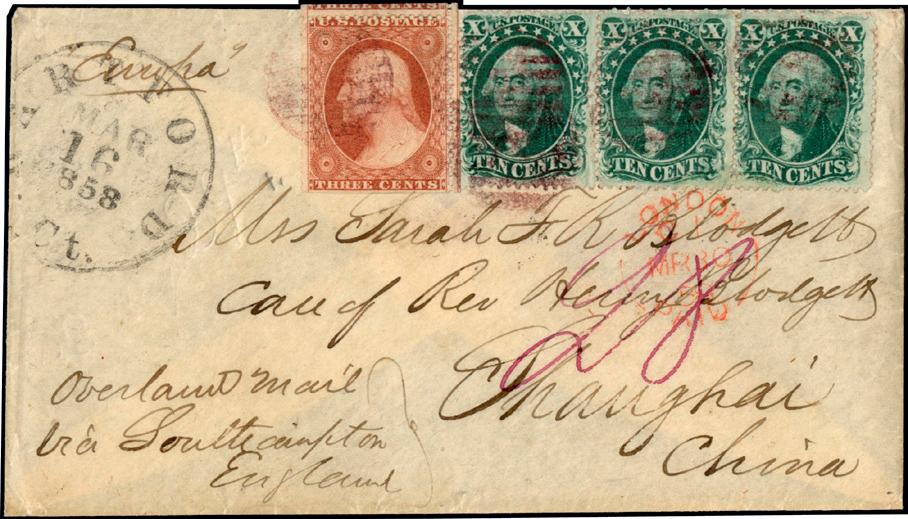 THREE CENTS
U.S. POSTAGE
THREE CENTS
X U.S. POSTAGE X
TEN CENTS
X U.S. POSTAGE X
TEN CENTS
X U.S. POSTAGE X
TEN CENTS
"Europa"
HARTFORD
MAR
16
1858
Ct.
LONDON
MR 30
PAID
Mrs Sarah F. R. Blodgett
Care of Rev Henry Blodgett
Shanghai
China
Overland Mail
via Southampton
England